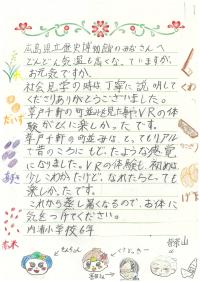 広島県立歴史博物館のみなさんへ
どんどん気温も高くなっていますが、
お元気ですか。
社会見学の時は丁寧に説明して
くださりありがとうございました。
草戸千軒の町並を見た事やVRの体
験がとくに楽しかったです。
草戸千軒の町並は、とてもリアル
で昔のころにもどったような感覚
になりました。VRの体験も、初めは
少しこわかったけど、なれたらとっても
楽しかったです。
これから蒸し暑くなるので、お体に
気をつけてください。
小学校6年
だいず
赤米